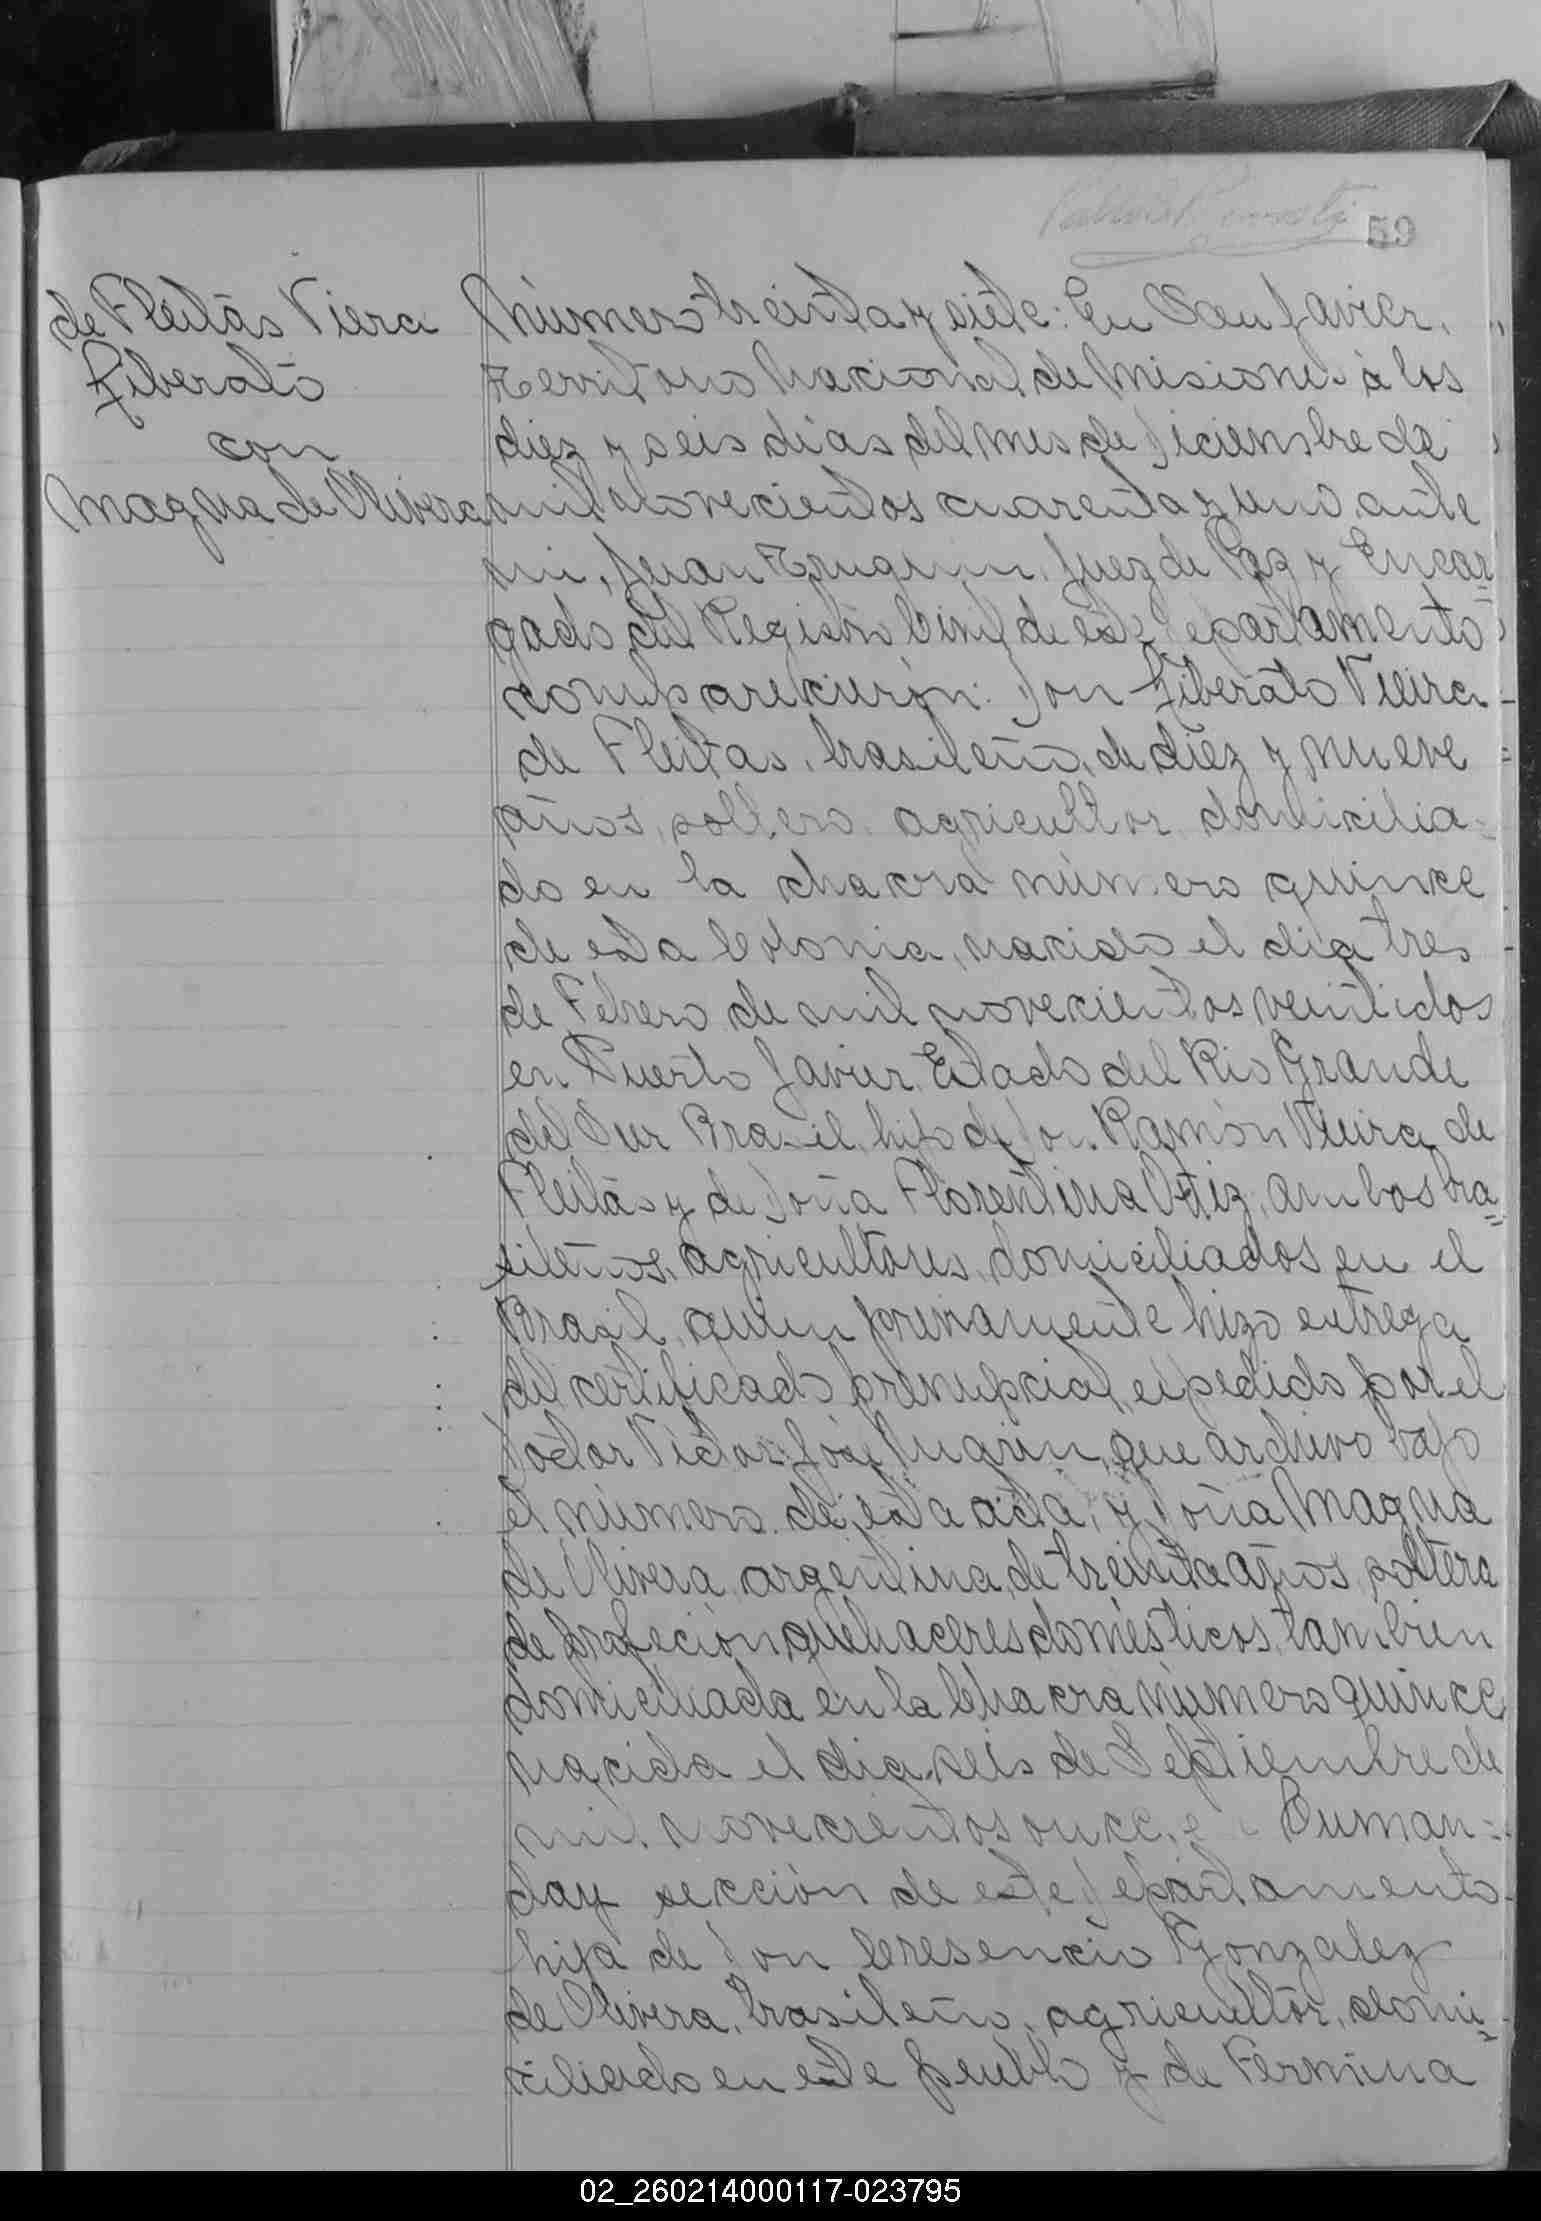 59
de Fleitas Viera
Liberato
con
Magna de Olivera
Número treinta y siete: En San Javier,
Territorio Nacional de Misiones a los
diez y seis días del mes de Diciembre de
mil novecientos cuarenta y uno, ante
mi, Juan Juez de Paz y Encar=
gado del Registro Civil de este Departamento
comparecieron: Don Liberato Vieira
de Fleitas, brasileño, de diez y nueve
años, soltero, agricultor, domicilia-
do en la chacra número quince
de esta Colonia, nacido el dia tres
de Febrero de mil novecientos veintidos
en Puerto Javier, Estado del Rio Grande
del Sur Brasil, hijo de Don Ramón Vieira de
Fleitas y de Doña Florentina Ortiz, ambos bra=
sileños, agricultores, domiciliados en el
Brasil, quien previamente hizo entrega
del certificado prenupcial, expedido por el
Doctor Victor José que archivo bajo
el número de esta acta, y Doña Magna
de Olivera, argentina, de treinta años, soltera
de profeción quehaceres domésticos, tambien
domiciliada en la Chacra número quince
nacida el dia seis de Septiembre de
mil novecientos once, en
sección de este Departamento
hija de Don Cresencio Gonzalez
de Olivera, brasileño, agricultor, domi=
ciliado en este pueblo y de Fermina
02_260214000117-023795